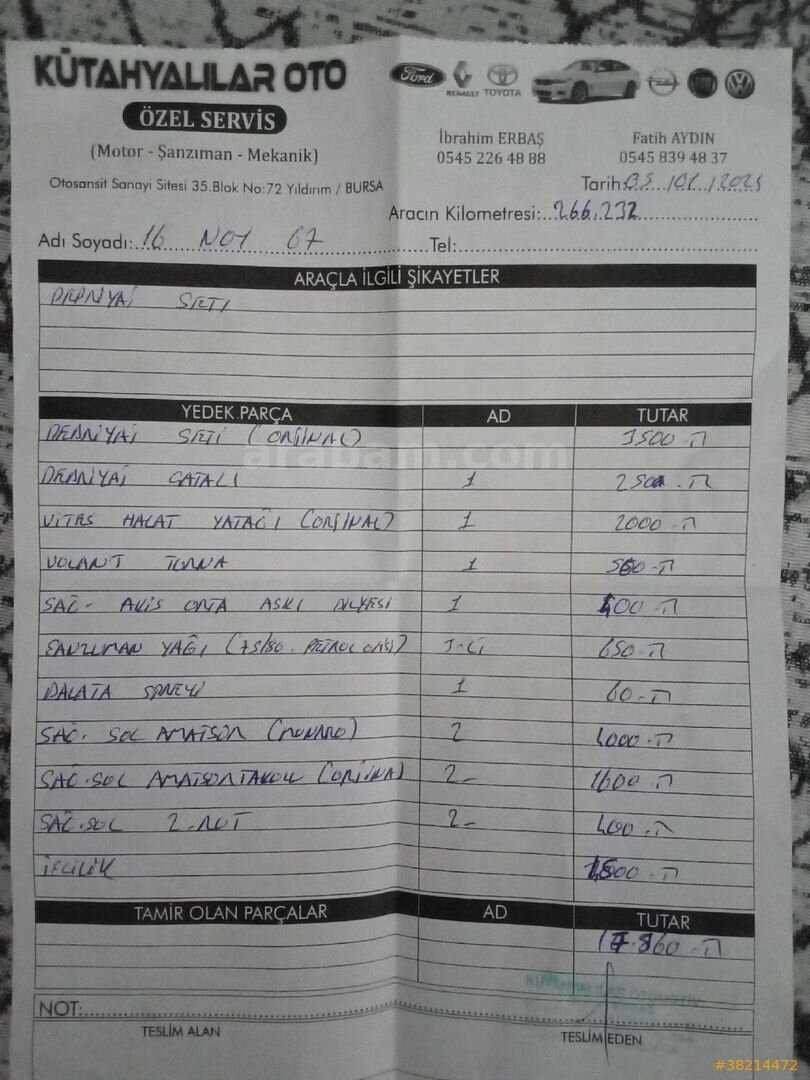 KÜTAHYALILAR OTO
Ford RENAULT TOYOTA
ÖZEL SERVİS
(Motor - Şanzıman - Mekanik)
İbrahim ERBAŞ
0545 226 48 88
Fatih AYDIN
0545 839 48 37
Otosansit Sanayi Sitesi 35.Blok No:72 Yıldırım / BURSA
Tarih:
Aracın Kilometresi: 266.232
Adı Soyadı: 16 NOY 67
Tel:
ARAÇLA İLGİLİ ŞİKAYETLER
DEBRİYAJ SETİ
YEDEK PARÇA AD TUTAR
DEBRİYAJ SETİ (ORJİNAL)
DEBRİYAJ ÇATALI 1
VİTES HALAT YATAĞI (ORJİNAL) 1 2000.-TL
VOLANT TORNA 1
SAĞ- AKİS ORTA ASKI BİLYESİ 1
ŞANZUMAN YAĞI 650-TL
BALATA SPREYİ 1 60.-TL
SAĞ. SOL AMATSÖR (MONRO) 2 4000.-TL
SAĞ.SOL 2- 1600-TL
SAĞ.SOL 2- 400.-TL
İŞCİLİK
TAMİR OLAN PARÇALAR AD TUTAR
NOT:
TESLİM ALAN
TESLİM EDEN
arabam.com
#38214472